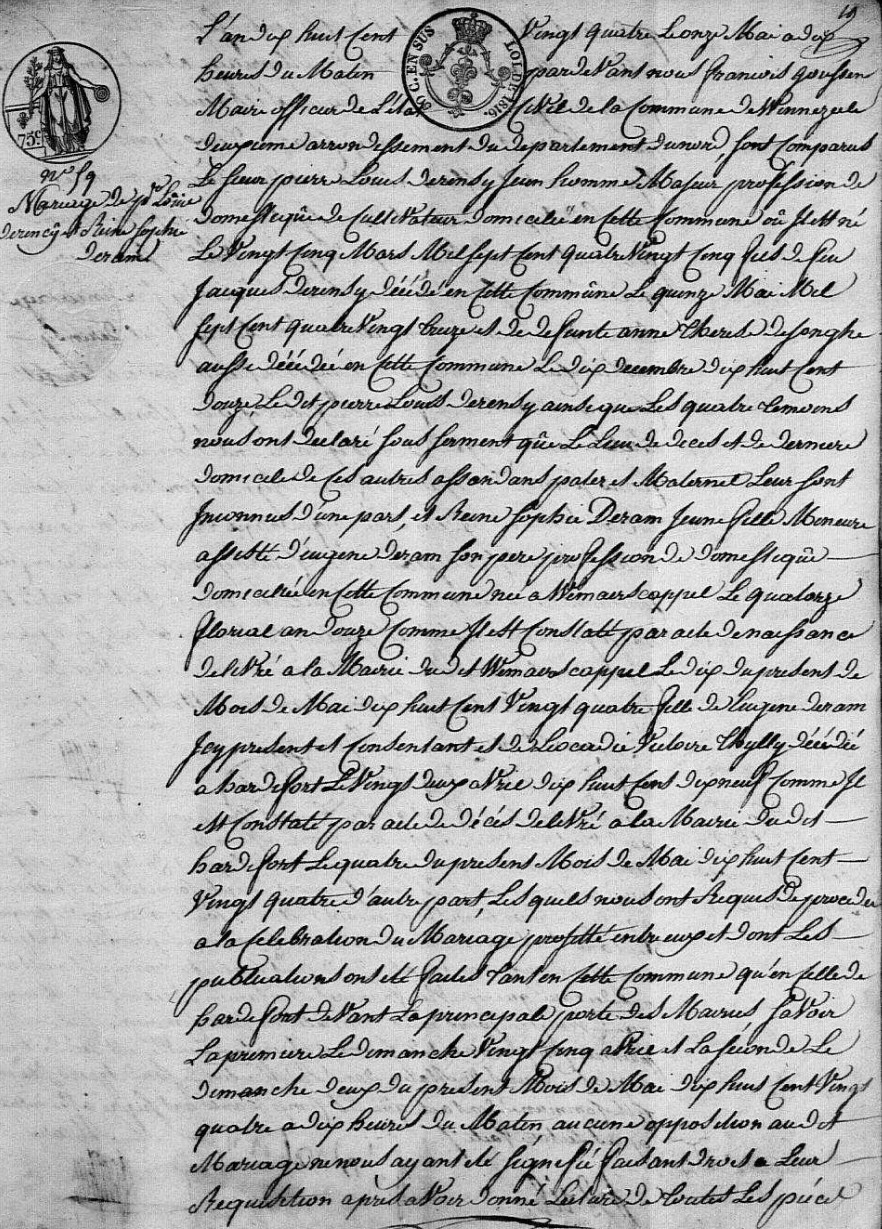 19
L'an dix huit Cent Vingt quatre Le onze Mai a dix
heures du Matin pardevant nous francois goussen
Maire officier de L'etat Civil de la Commune de Winnezeele
deuxieme arrondissement du departement du nord, sont Comparus
Le sieur pierre Louis derensy Jeun homme Majeur profession de
domestique de Cultivateur domicilié en Cette Commune où Il est né
Le Vingt Cinq Mars Mil sept Cent quatre Vingt Cinq fils de feu
Jacques derensy décédé en Cette Commune Le quinze Mai Mil
sept Cent quatre Vingt treize et de defunte anne therese desonghe
aussi décédé en Cette Commune Le dix decembre dix huit Cent
douze Le dit pierre Louis derensy ainsi que Les quatre temoins
nous ont declaré sous serment que Le Lieu de deces et de derniere
domicile de Ces autres assandans pater et Maternel Leur sont
Inconnus d'une part, et Reine sophie Deram Jeune fille Mineure
assisté d'eugene deram son pere profession de domestique
domiciliée en Cette Commune née a Wemaerscappel Le quatorze
florial an douze Comme Il est Constaté par acte de naissance
delivré a la Mairie du dit Wemaerscappel Le dix du present de
Mois de Mai dix huit Cent Vingt quatre fille de Eugene deram
Icy present et Consentant et de Leocadie Victoire thylly décédé
a hardifort Le Vingt deux avril dix huit Cent dix neuf Comme Il
est Constaté par acte de décès delivré a la Mairie du dit
hardifort Le quatre du present Mois de Mai dix huit Cent
Vingt quatre d'autre part, Les quels nous ont Requis de proceder
a la Celebration du Mariage projetté entre eux et dont Les
publications ont eté faites tant en Cette Commune qu'en Celle de
hardifort devant La principale porte des Mairies savoir
La premiere Le dimanche Vingt Cinq avril et La seconde Le
dimanche deux du present Mois de Mai dix huit Cent Vingt
quatre a dix heures du Matin aucune opposition au dit
Mariage ne nous ayant eté signifié faisant droit a Leur
Requisition après avoir donné Lecture de toutes Les pièces
75 C
50 C. EN SUS LOI DE 1816.
n° 59
Mariage de pre Louis
derency et Reine sophie
deram